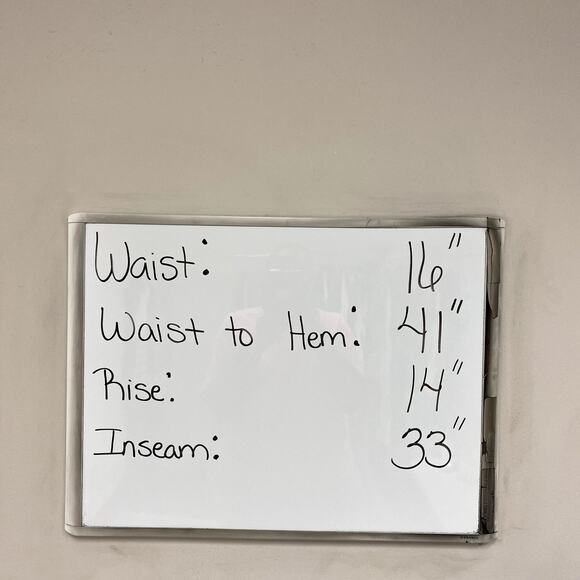 Waist: 16"
Waist to Hem: 41"
Rise: 14"
Inseam: 33"